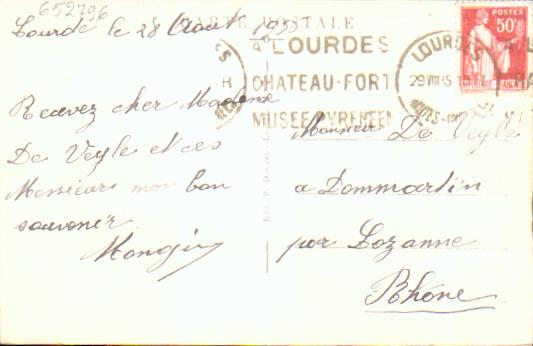 652796
Lourde le 28 Aout 193
CARTE POSTALE
LOURDES
CHATEAU-FORT
MUSEE PYRENEEN
LOURDES
29 VIII 35
POSTES
50c
Recevez cher Madame
De Veyle et ces
Messieurs mon bon
souvenir
Mongin
Monsieur De Veyle
a Dommartin
par Lozanne
Rhône